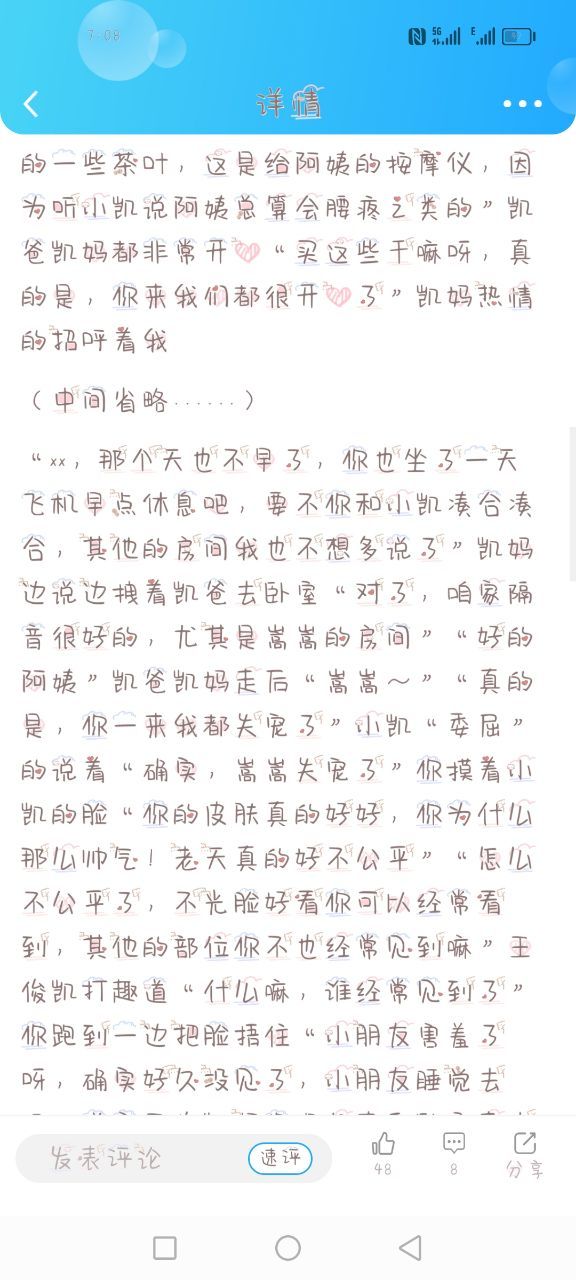 7:08
5G
E
详情
的一些茶叶，这是给阿姨的按摩仪，因
为听小凯说阿姨总算会腰疼之类的”凯
爸凯妈都非常开心“买这些干嘛呀，真
的是，你来我们都很开心了”凯妈热情
的招呼着我
（中间省略……）
“xx，那个天也不早了，你也坐了一天
飞机早点休息吧，要不你和小凯凑合凑
合，其他的房间我也不想多说了”凯妈
边说边拽着凯爸去卧室“对了，咱家隔
音很好的，尤其是嵩嵩的房间”“好的
阿姨”凯爸凯妈走后“嵩嵩～”“真的
是，你一来我都失宠了”小凯“委屈”
的说着“确实，嵩嵩失宠了”你摸着小
凯的脸“你的皮肤真的好好，你为什么
那么帅气！老天真的好不公平”“怎么
不公平了，不光脸好看你可以经常看
到，其他的部位你不也经常见到嘛”王
俊凯打趣道“什么嘛，谁经常见到了”
你跑到一边把脸捂住“小朋友害羞了
呀，确实好久没见了，小朋友睡觉去
发表评论
速评
48
8
分享